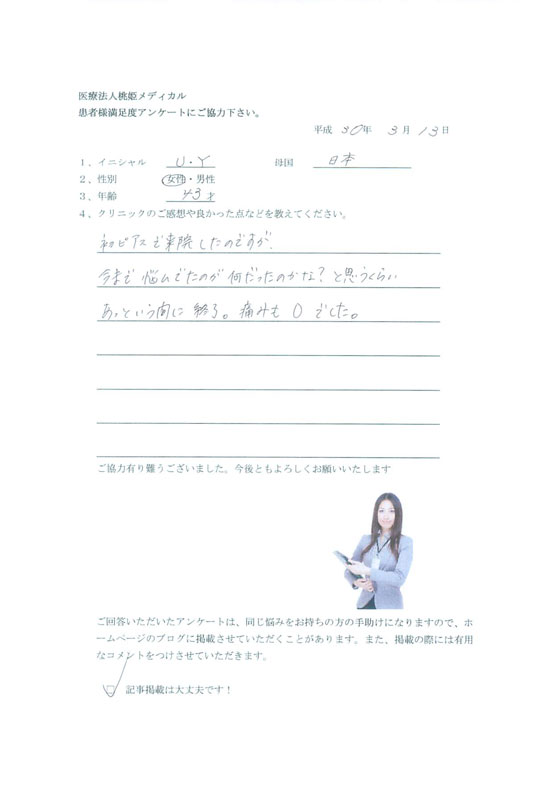 医療法人桃姫メディカル
患者様満足度アンケートにご協力下さい。
平成 30年 3月 13日
1、イニシャル U・Y 母国 日本
2、性別 女性・男性
3、年齢 43才
4、クリニックのご感想や良かった点などを教えてください。
初ピアスで来院したのですが、
今まで悩んでたのが何だったのかな?と思うくらい
あっという間に終了。痛みも0でした。
ご協力有り難うございました。今後ともよろしくお願いいたします
ご回答いただいたアンケートは、同じ悩みをお持ちの方の手助けになりますので、ホ
ームページのブログに掲載させていただくことがあります。また、掲載の際には有用
なコメントをつけさせていただきます。
記事掲載は大丈夫です！